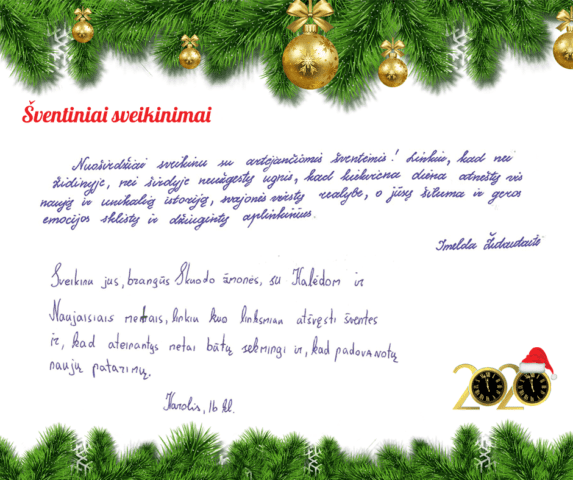 Šventiniai sveikinimai
Nuoširdžiai sveikinu su artėjančiomis šventėmis! Linkiu, kad nei
židinyje, nei širdyje neužgestų ugnis, kad kiekviena diena atneštų vis
naują ir unikalią istoriją, svajonės virstų realybe, o jūsų šiluma ir geros
emocijos sklistų ir džiugintų aplinkinius.
Imelda
Sveikinu jus, brangūs Skuodo žmonės, su Kalėdom ir
Naujaisiais metais, linkiu kuo linksmiau atšvęsti šventes
ir, kad ateinantys metai būtų sėkmingi ir, kad padovanotų
naujų patarimų.
Karolis, 1b kl.
2020